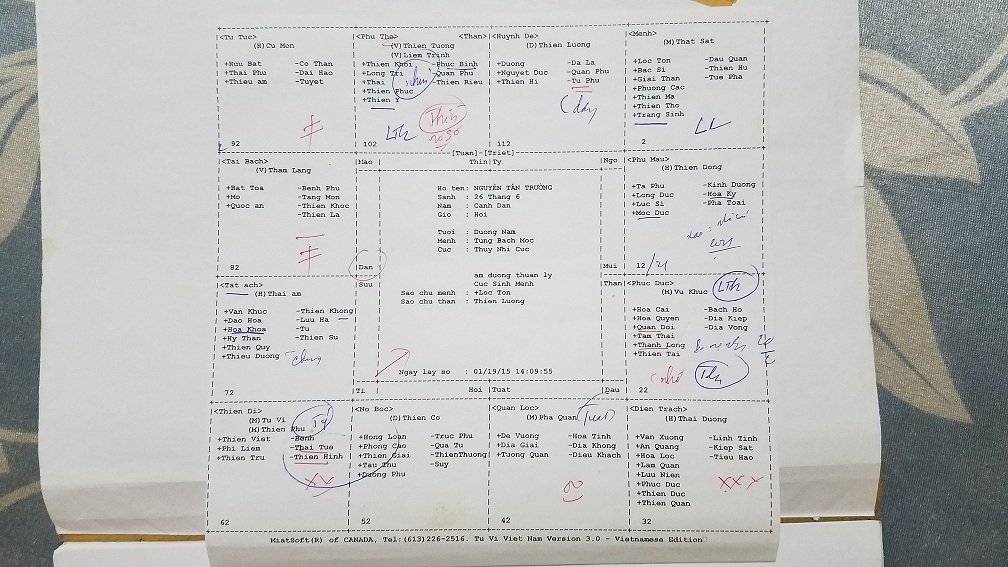 <Tu Tuc>
(H) Cu Mon
+Nuu Bat -Co Than
+Thai Phu -Dai Hao
+Thieu am -Tuyet
92
<Phu The> <Than>
(V) Thien Tuong
(V) Liem Trinh
+Thien Khoi -Phuc Binh
+Long Tri -Quan Phu
+Thai -Thien Rieu
+Thien Phuc
+Thien Y
LTh
Thìn
2030
102
<Huynh De>
(D) Thien Luong
+Duong -Da La
+Nguyet Duc -Quan Phu
+Thien Hi -Tu Phu
112
<Menh>
(M) That Sat
+Loc Ton -Dau Quan
+Bac Si -Thien Hu
+Giai Than -Tue Pha
+Phuong Cac
+Thien Ma
+Thien Tho
+Trang Sinh
LL
2
[Tuan]-[Triet]
<Tai Bach>
(V) Tham Lang
+Bat Toa -Benh Phu
+Mo -Tang Mon
+Quoc an -Thien Khoc
-Thien La
82
Mao Thin Ty Ngo
Ho ten: NGUYỄN TẤN TRƯƠNG
Sanh : 26 Thang 6
Nam : Canh Dan
Gio : Hoi
Tuoi : Duong Nam
Menh : Tung Bach Moc
Cuc : Thuy Nhi Cuc
Dan Mui
<Phu Mau>
(H) Thien Dong
+Ta Phu -Kinh Duong
+Long Duc -Hoa Ky
+Luc Si -Pha Toai
+Moc Duc
12 /21
<Tat ach>
(H) Thai am
+Van Khuc -Thien Khong
+Dao Hoa -Luu Ha
+Hoa Khoa -Tu
+Hy Than -Thien Su
+Thien Quy
+Thieu Duong
72
Suu Than
am duong thuan ly
Cuc Sinh Menh
Sao chu menh : +Loc Ton
Sao chu than : Thien Luong
Ngay lay so : 01/19/15 14:09:55
Ti Hoi Tuat Dau
<Phuc Duc>
(M) Vu Khuc
LTh
+Hoa Cai -Bach Ho
+Hoa Quyen -Dia Kiep
+Quan Doi -Dia Vong
+Tam Thai
+Thanh Long
+Thien Tai
nhỏ
22
<Thien Di>
(M) Tu Vi
(M) Thien Phu
Tý
+Thien Viet -Benh
+Phi Liem -Thai Tue
+Thien Tru -Thien Hinh
XV
62
<No Boc>
(D) Thien Co
+Hong Loan -Truc Phu
+Phong Cao -Qua Tu
+Thien Giai -ThienThuong
+Tau Thu -Suy
+Duong Phu
52
<Quan Loc>
(M) Pha Quan
Tuất
+De Vuong -Hoa Tinh
+Dia Giai -Dia Khong
+Tuong Quan -Dieu Khach
42
<Dien Trach>
(H) Thai Duong
+Van Xuong -Linh Tinh
+An Quang -Kiep Sat
+Hoa Loc -Tieu Hao
+Lam Quan
+Luu Nien
+Phuc Duc
+Thien Duc
+Thien Quan
XXX
32
MiatSoft(R) of CANADA, Tel:(613)226-2516. Tu Vi Viet Nam Version 3.0 - Vietnamese Edition